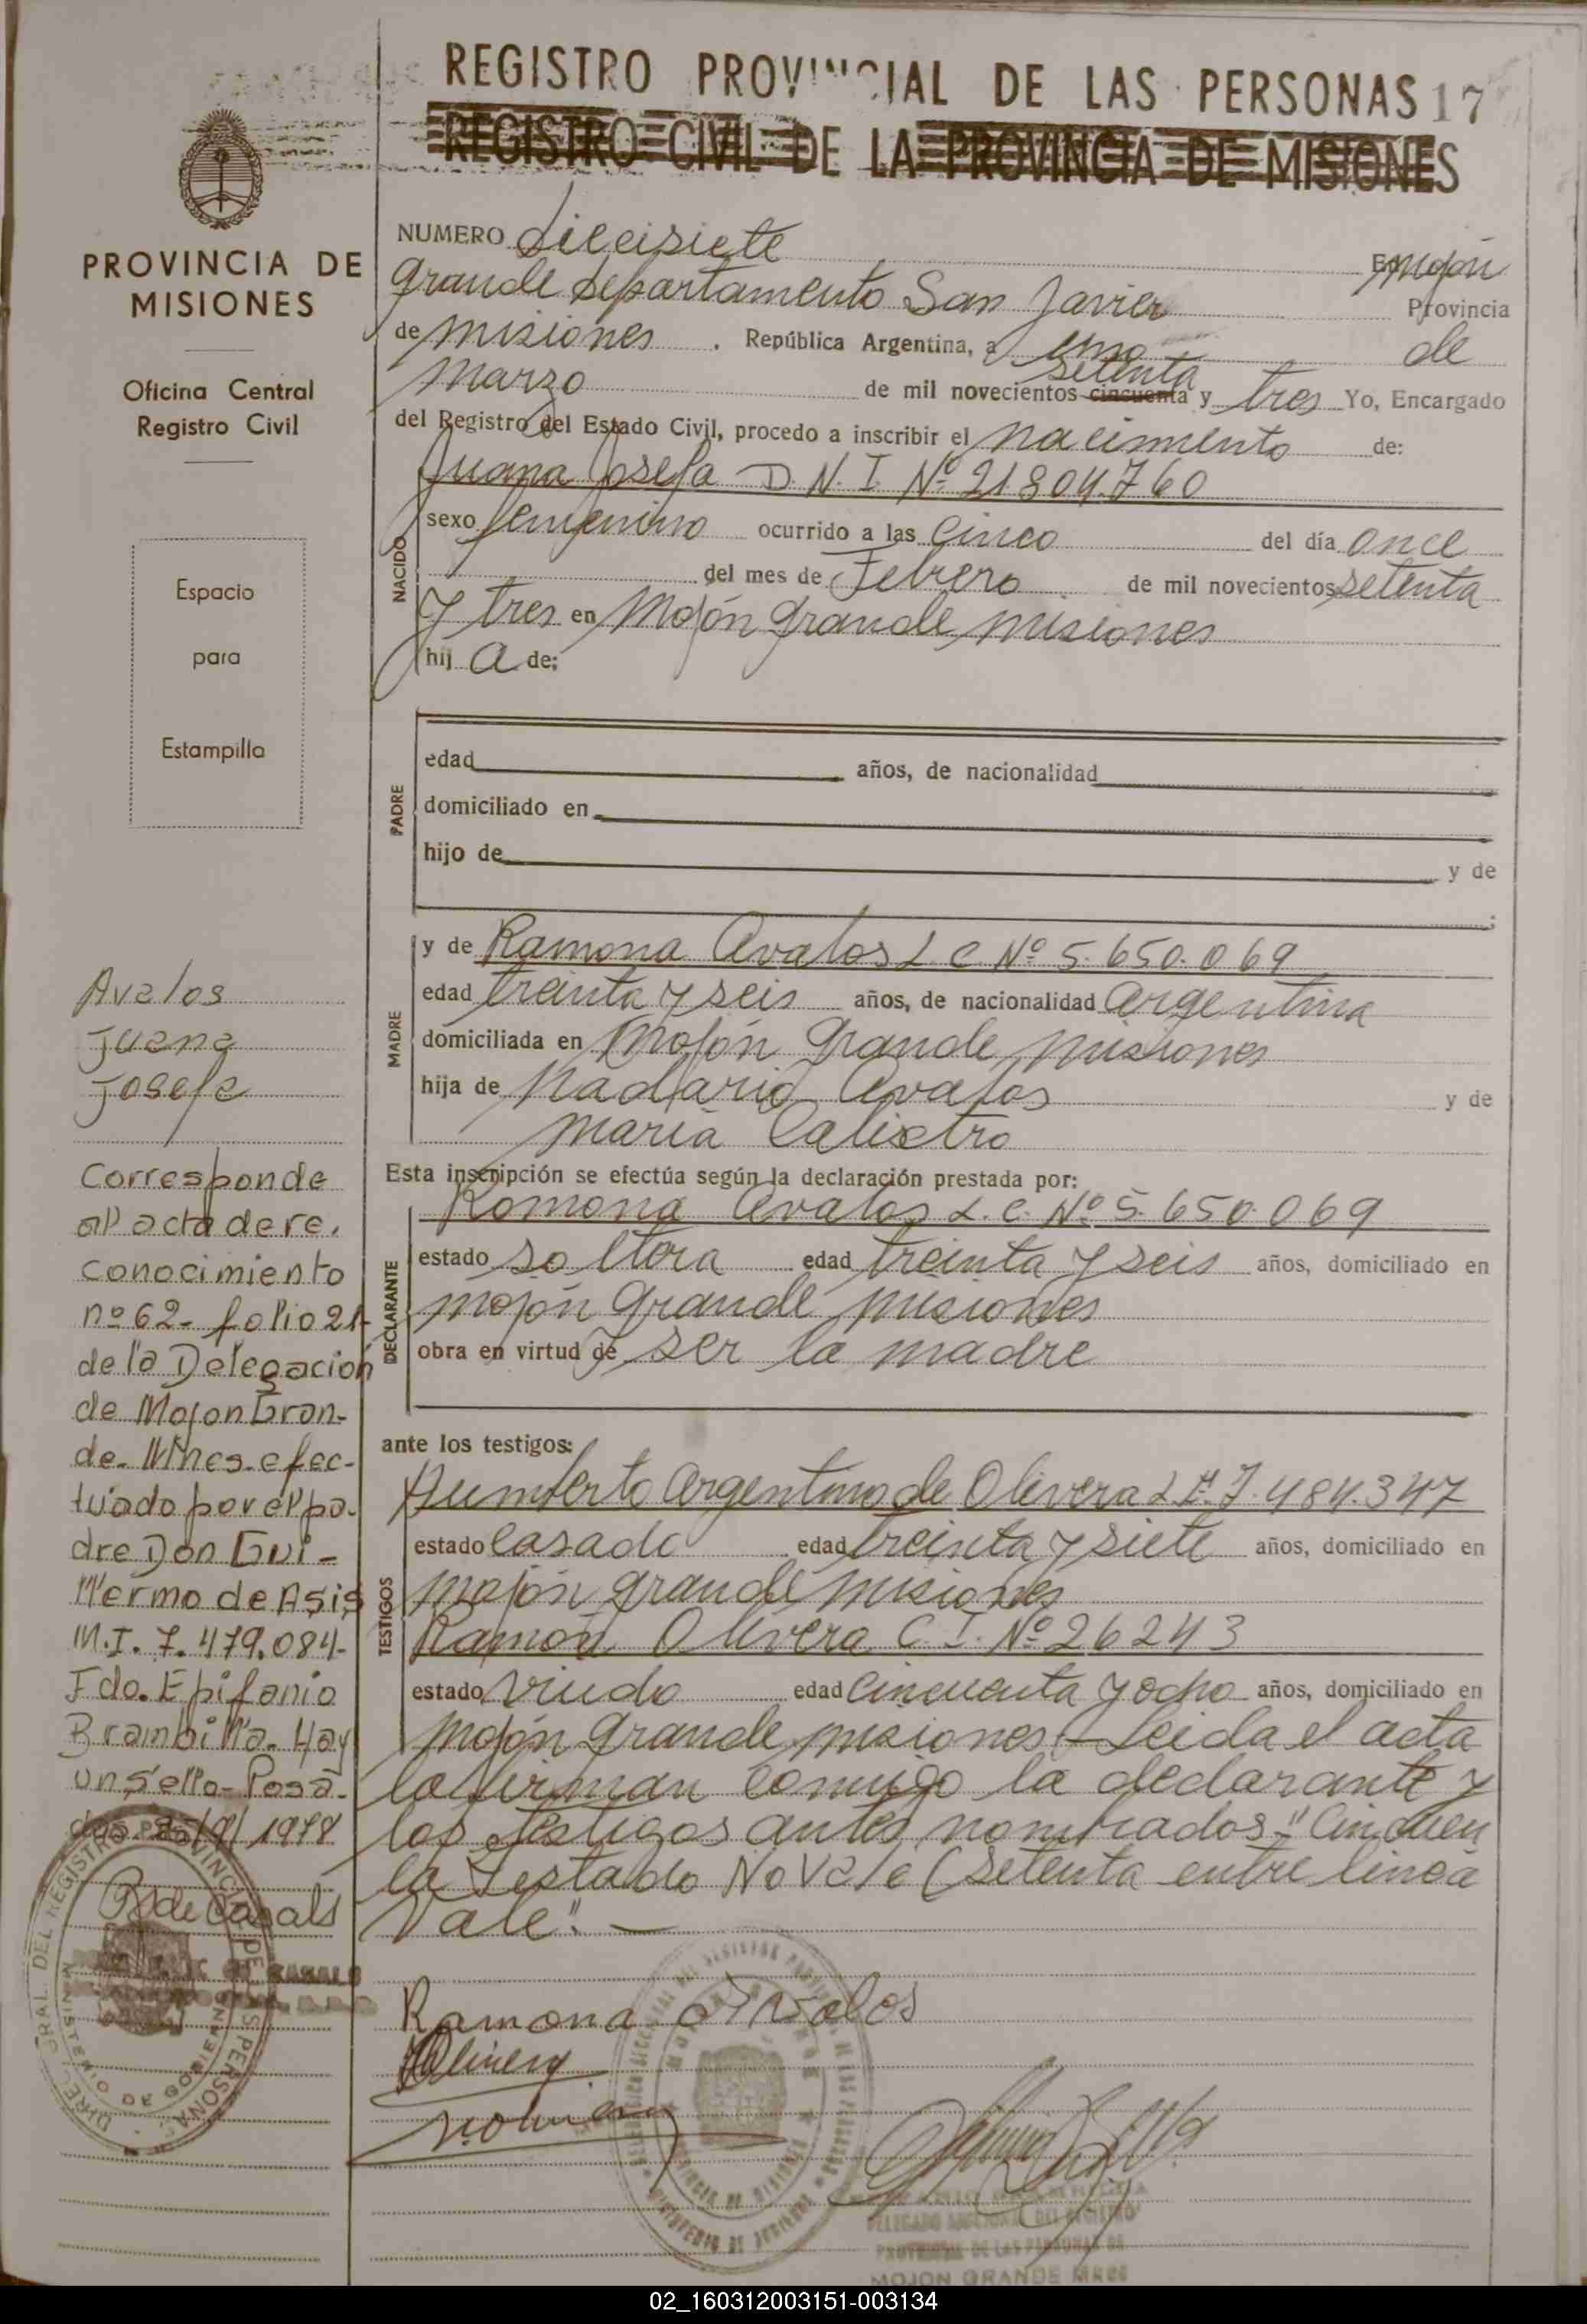 REGISTRO PROVINCIAL DE LAS PERSONAS 17
REGISTRO CIVIL DE LA PROVINCIA DE MISIONES
PROVINCIA DE
MISIONES
Oficina Central
Registro Civil
Espacio
para
Estampilla
Avalos
Juana
Josefa
Corresponde
al acta de re.
conocimiento
nº 62- folio 21-
de la Delegación
de Mojon Gran-
de- Mnes. efec-
tuado por el pa-
dre Don Gui-
llermo de Asis
M.I. 7.479.084-
Fdo. Epifanio
Brambilla. Hay
un sello- Posa-
das. /9/ 1978
NUMERO diecisiete En Mojón
Grande departamento San Javier Provincia
de Misiones . República Argentina, a uno de
Marzo de mil novecientos cincuenta setenta y tres Yo, Encargado
del Registro del Estado Civil, procedo a inscribir el nacimiento de:
NACIDO
Juana Josefa D.N.I. Nº 21.804.760
sexo femenino ocurrido a las cinco del día once
del mes de Febrero de mil novecientos setenta
y tres en Mojón Grande Misiones
hij a de;
PADRE
edad años, de nacionalidad
domiciliado en
hijo de y de
MADRE
y de Ramona Avalos L.C. Nº 5.650.069
edad treinta y seis años, de nacionalidad Argentina
domiciliada en Mojón Grande Misiones
hija de Avalos y de
María Calixtro
Esta inscripción se efectúa según la declaración prestada por:
DECLARANTE
Romona Avalos L.C. Nº 5.650.069
estado soltera edad treinta y seis años, domiciliado en
Mojón Grande Misiones
obra en virtud de ser la madre
ante los testigos:
TESTIGOS
Humberto Argentino de Olivera L.E. 7.484.347
estado casado edad treinta y siete años, domiciliado en
Mojón Grande Misiones
Ramón Olivera C.I. Nº 26243
estado viudo edad cincuenta y ocho años, domiciliado en
Mojón Grande Misiones.- Leida el acta
la firman conmigo la declarante y
los testigos antes nombrados "Cincuen
ta Testado No Vale (Setenta entre linea
Vale".-
Ramona Avalos
Olivera
DELEGADO SECCIONAL DEL REGISTRO
PROVINCIAL DE LAS PERSONAS DE
MOJON GRANDE MNES
02_160312003151-003134